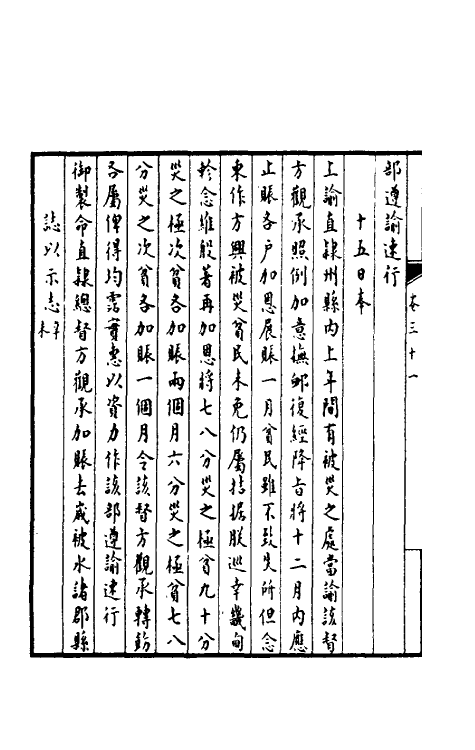 部遵諭速行
十五日奉
上諭直隸州縣內上年間有被災之處當諭該督
方觀承照例加意撫卹復經降旨將十二月內應
止賑各户加恩展賑一月貧民雖不致失所但念
東作方興被災貧民未免仍屬拮据朕巡幸畿甸
軫念維殷著再加恩將七八分災之極貧九十分
災之極次貧各加賑兩個月六分災之極貧七八
分災之次貧各加賑一個月令該督方觀承轉飭
各屬俾得均霑實惠以資力作該部遵諭速行
御製命直隸總督方觀承加賑去歲被水諸郡縣
誌以示志辛
未
卷三十一